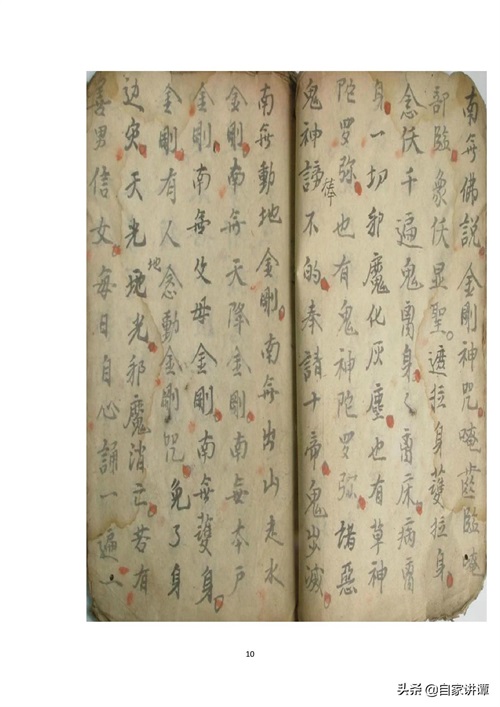 南無佛説金剛神咒唵藍臨唵
部臨象伏显聖遮拉身護拉身
念伏千遍鬼离身々离床病离
身一切邪魔化灰塵也有草神
陀罗弥也有鬼神陀罗弥諸惡
鬼神謗不的奉請十帝鬼出滅
俸
南無動地金剛南無出山走水
金剛南無天降金剛南無本户
金剛南無父母金剛南無護身
金剛有人念動金剛咒免了身
边灾天光地光邪魔消亡若有
地
善男信女每日自心誦一遍
10
头条 @自家讲谭